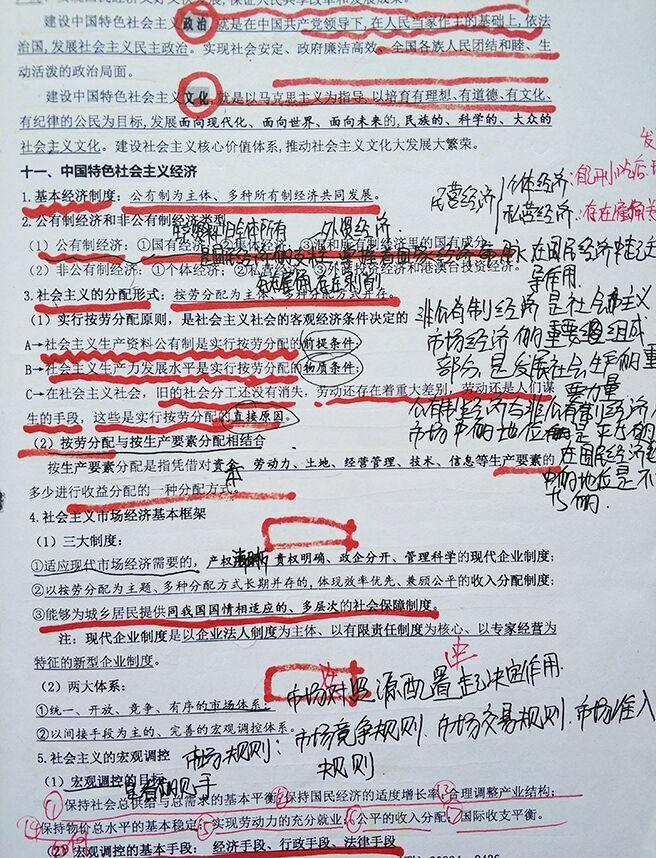 建设中国特色社会主义政治,就是在中国共产党领导下,在人民当家作主的基础上,依法
治国,发展社会主义民主政治。实现社会安定、政府廉洁高效、全国各族人民团结和睦、生
动活泼的政治局面。
建设中国特色社会主义文化,就是以马克思主义为指导,以培育有理想、有道德、有文化、
有纪律的公民为目标,发展面向现代化、面向世界、面向未来的,民族的、科学的、大众的
社会主义文化。建设社会主义核心价值体系,推动社会主义文化大发展大繁荣。
十一、中国特色社会主义经济
1.基本经济制度:公有制为主体、多种所有制经济共同发展。
民营经济
个体经济:
私营经济:存在雇佣关
2.公有制经济和非公有制经济类型
外资经济
(1)公有制经济:①国有经济②集体经济;③混和所有制经济里的国有成分
在国民经济中起主
导作用.
(2)非公有制经济:①个体经济;②私营经济;③外商投资经济和港澳台投资经济。
3.社会主义的分配形式:按劳分配为主体、多种分配方式并存。
(1)实行按劳分配原则,是社会主义社会的客观经济条件决定的
非公有制经济是社会主义
市场经济的重要组成
部分,是发展社会生产的重
要力量
A→社会主义生产资料公有制是实行按劳分配的前提条件;
B→社会主义生产力发展水平是实行按劳分配的物质条件;
C→在社会主义社会,旧的社会分工还没有消失,劳动还存在着重大差别,劳动还是人们谋
生的手段,这些是实行按劳分配的直接原因。
公有制经济与非公有制经济
市场中的地位是平等的
在国民经济
中的地位是不
(2)按劳分配与按生产要素分配相结合
按生产要素分配是指凭借对资本 劳动力、土地、经营管理、技术、信息等生产要素的
多少进行收益分配的一种分配方式。
4.社会主义市场经济基本框架
(1)三大制度:
①适应现代市场经济需要的,产权清晰 责权明确、政企分开、管理科学的现代企业制度;
②以按劳分配为主题、多种分配方式长期并存的,体现效率优先、兼顾公平的收入分配制度;
③能够为城乡居民提供同我国国情相适应的、多层次的社会保障制度。
注:现代企业制度是以企业法人制度为主体、以有限责任制度为核心、以专家经营为
特征的新型企业制度。
(2)两大体系:
市场对资源配置起决定作用.
①统一、开放、竞争、有序的市场体系;
②以间接手段为主的、完善的宏观调控体系。
市场规则:市场竞争规则.市场交易规则.市场准入
规则
5.社会主义的宏观调控
(1)宏观调控的目标
①保持社会总供给与总需求的基本平衡②保持国民经济的适度增长率③合理调整产业结构;
④保持物价总水平的基本稳定;⑤实现劳动力的充分就业;⑥公平的收入分配⑦国际收支平衡。
(2)宏观调控的基本手段:经济手段、行政手段、法律手段